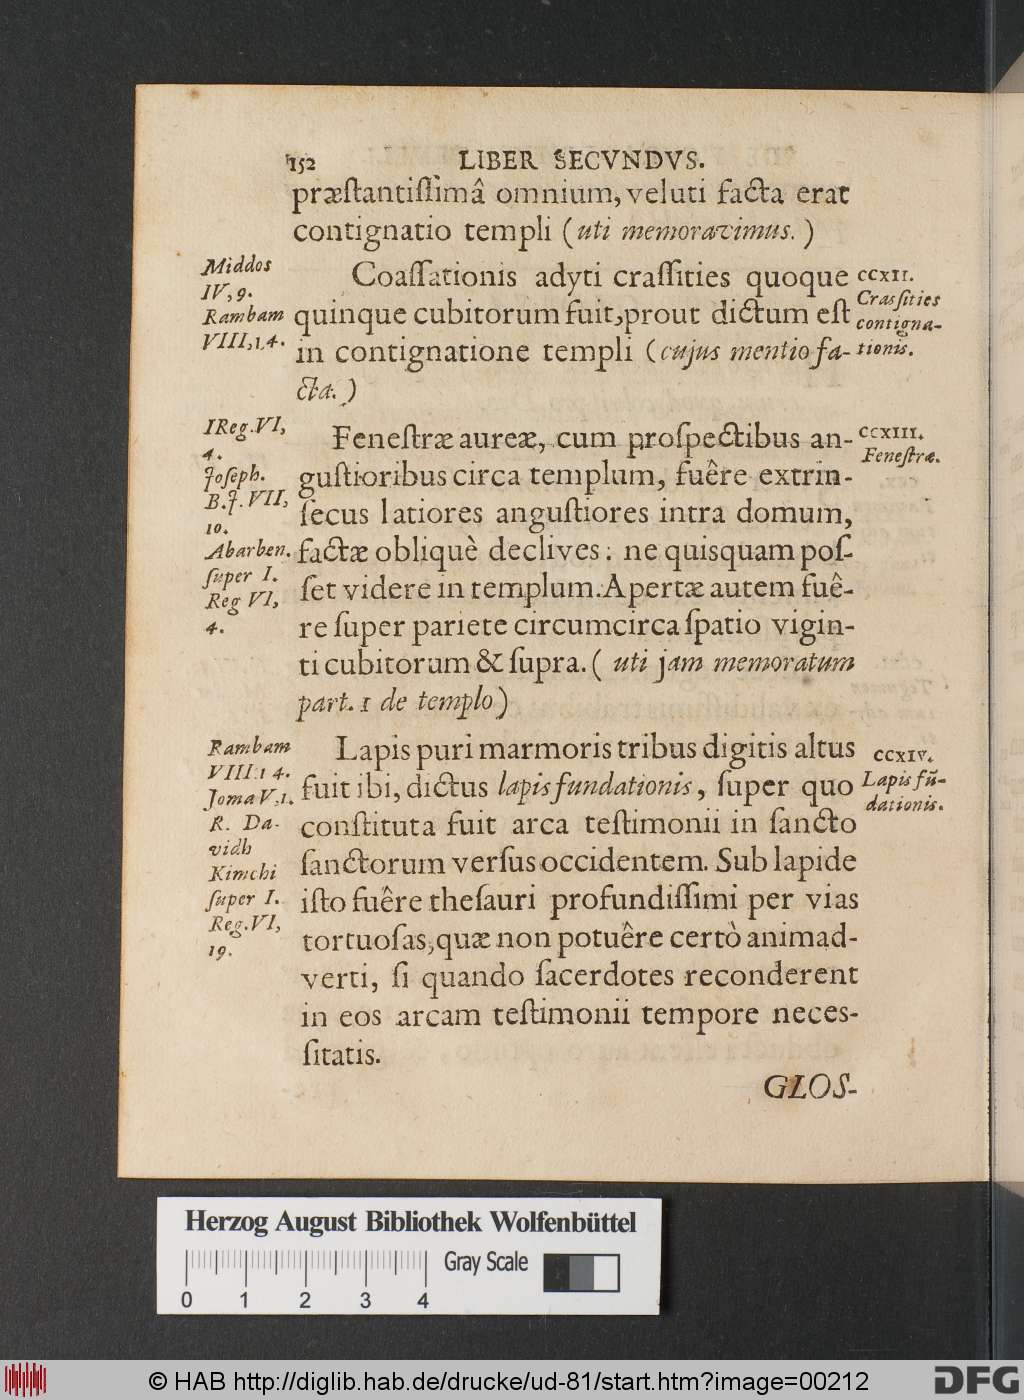 152 LIBER SECVNDVS.
præſtantiſſimâ omnium, veluti facta erat
contignatio templi (uti memoravimus.)
Middos
IV, 9.
Rambam
VIII, 14.
Coaſſationis adyti craſſities quoque
quinque cubitorum fuit, prout dictum eſt
in contignatione templi (cujus mentio fa-
cta.)
CCXII.
Craſſities
contigna-
tionis.
I Reg. VI,
4.
Joſeph.
B.J. VII,
10.
Abarben.
ſuper I.
Reg VI,
4.
Feneſtræ aureæ, cum proſpectibus an-
guſtioribus circa templum, fuêre extrin-
ſecus latiores anguſtiores intra domum,
factæ obliquè declives: ne quisquam poſ-
ſet videre in templum. Apertæ autem fuê-
re ſuper pariete circumcirca ſpatio vigin-
ti cubitorum & ſupra. (uti jam memoratum
part. 1 de templo)
CCXIII.
Feneſtræ.
Rambam
VIII. 14.
Joma V, 1.
R. Da-
vidh
Kimchi
ſuper I.
Reg. VI,
19.
Lapis puri marmoris tribus digitis altus
fuit ibi, dictus lapis fundationis, ſuper quo
conſtituta fuit arca teſtimonii in ſancto
ſanctorum verſus occidentem. Sub lapide
iſto fuêre theſauri profundiſſimi per vias
tortuoſas, quæ non potuêre certò animad-
verti, ſi quando ſacerdotes reconderent
in eos arcam teſtimonii tempore neces-
ſitatis.
CCXIV.
Lapis fū-
dationis.
GLOS-
Herzog August Bibliothek Wolfenbüttel
Gray Scale
0 1 2 3 4
© HAB http://diglib.hab.de/drucke/ud-81/start.htm?image=00212
DFG